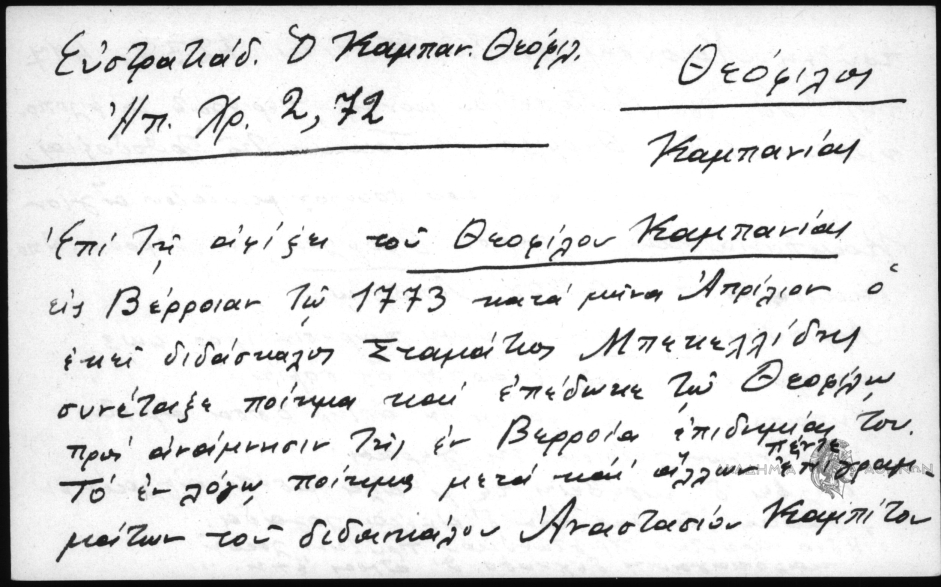 Εὐστρατιάδ. Ὁ Καμπαν. Θεόφιλ.
Ἠπ. Χρ. 2, 72
Θεόφιλος
Καμπανίας
Ἐπὶ τῇ ἀφίξει τοῦ Θεοφίλου Καμπανίας
εἰς Βέρροιαν τῷ 1773 κατὰ μῆνα Ἀπρίλιον ὁ
ἐκεῖ διδάσκαλος Σταμάτιος Μπεκελλίδης
συνέταξε ποίημα καὶ ἐπέδωκε τῷ Θεοφίλῳ
πρὸς ἀνάμνησιν τῆς ἐν Βερροίᾳ ἐπιδημίας του.
Τὸ ἐν λόγῳ ποίημα μετὰ καὶ ἄλλων πέντε ἐπιγραμ-
μάτων τοῦ διδασκάλου Ἀναστασίου Καμπίτου